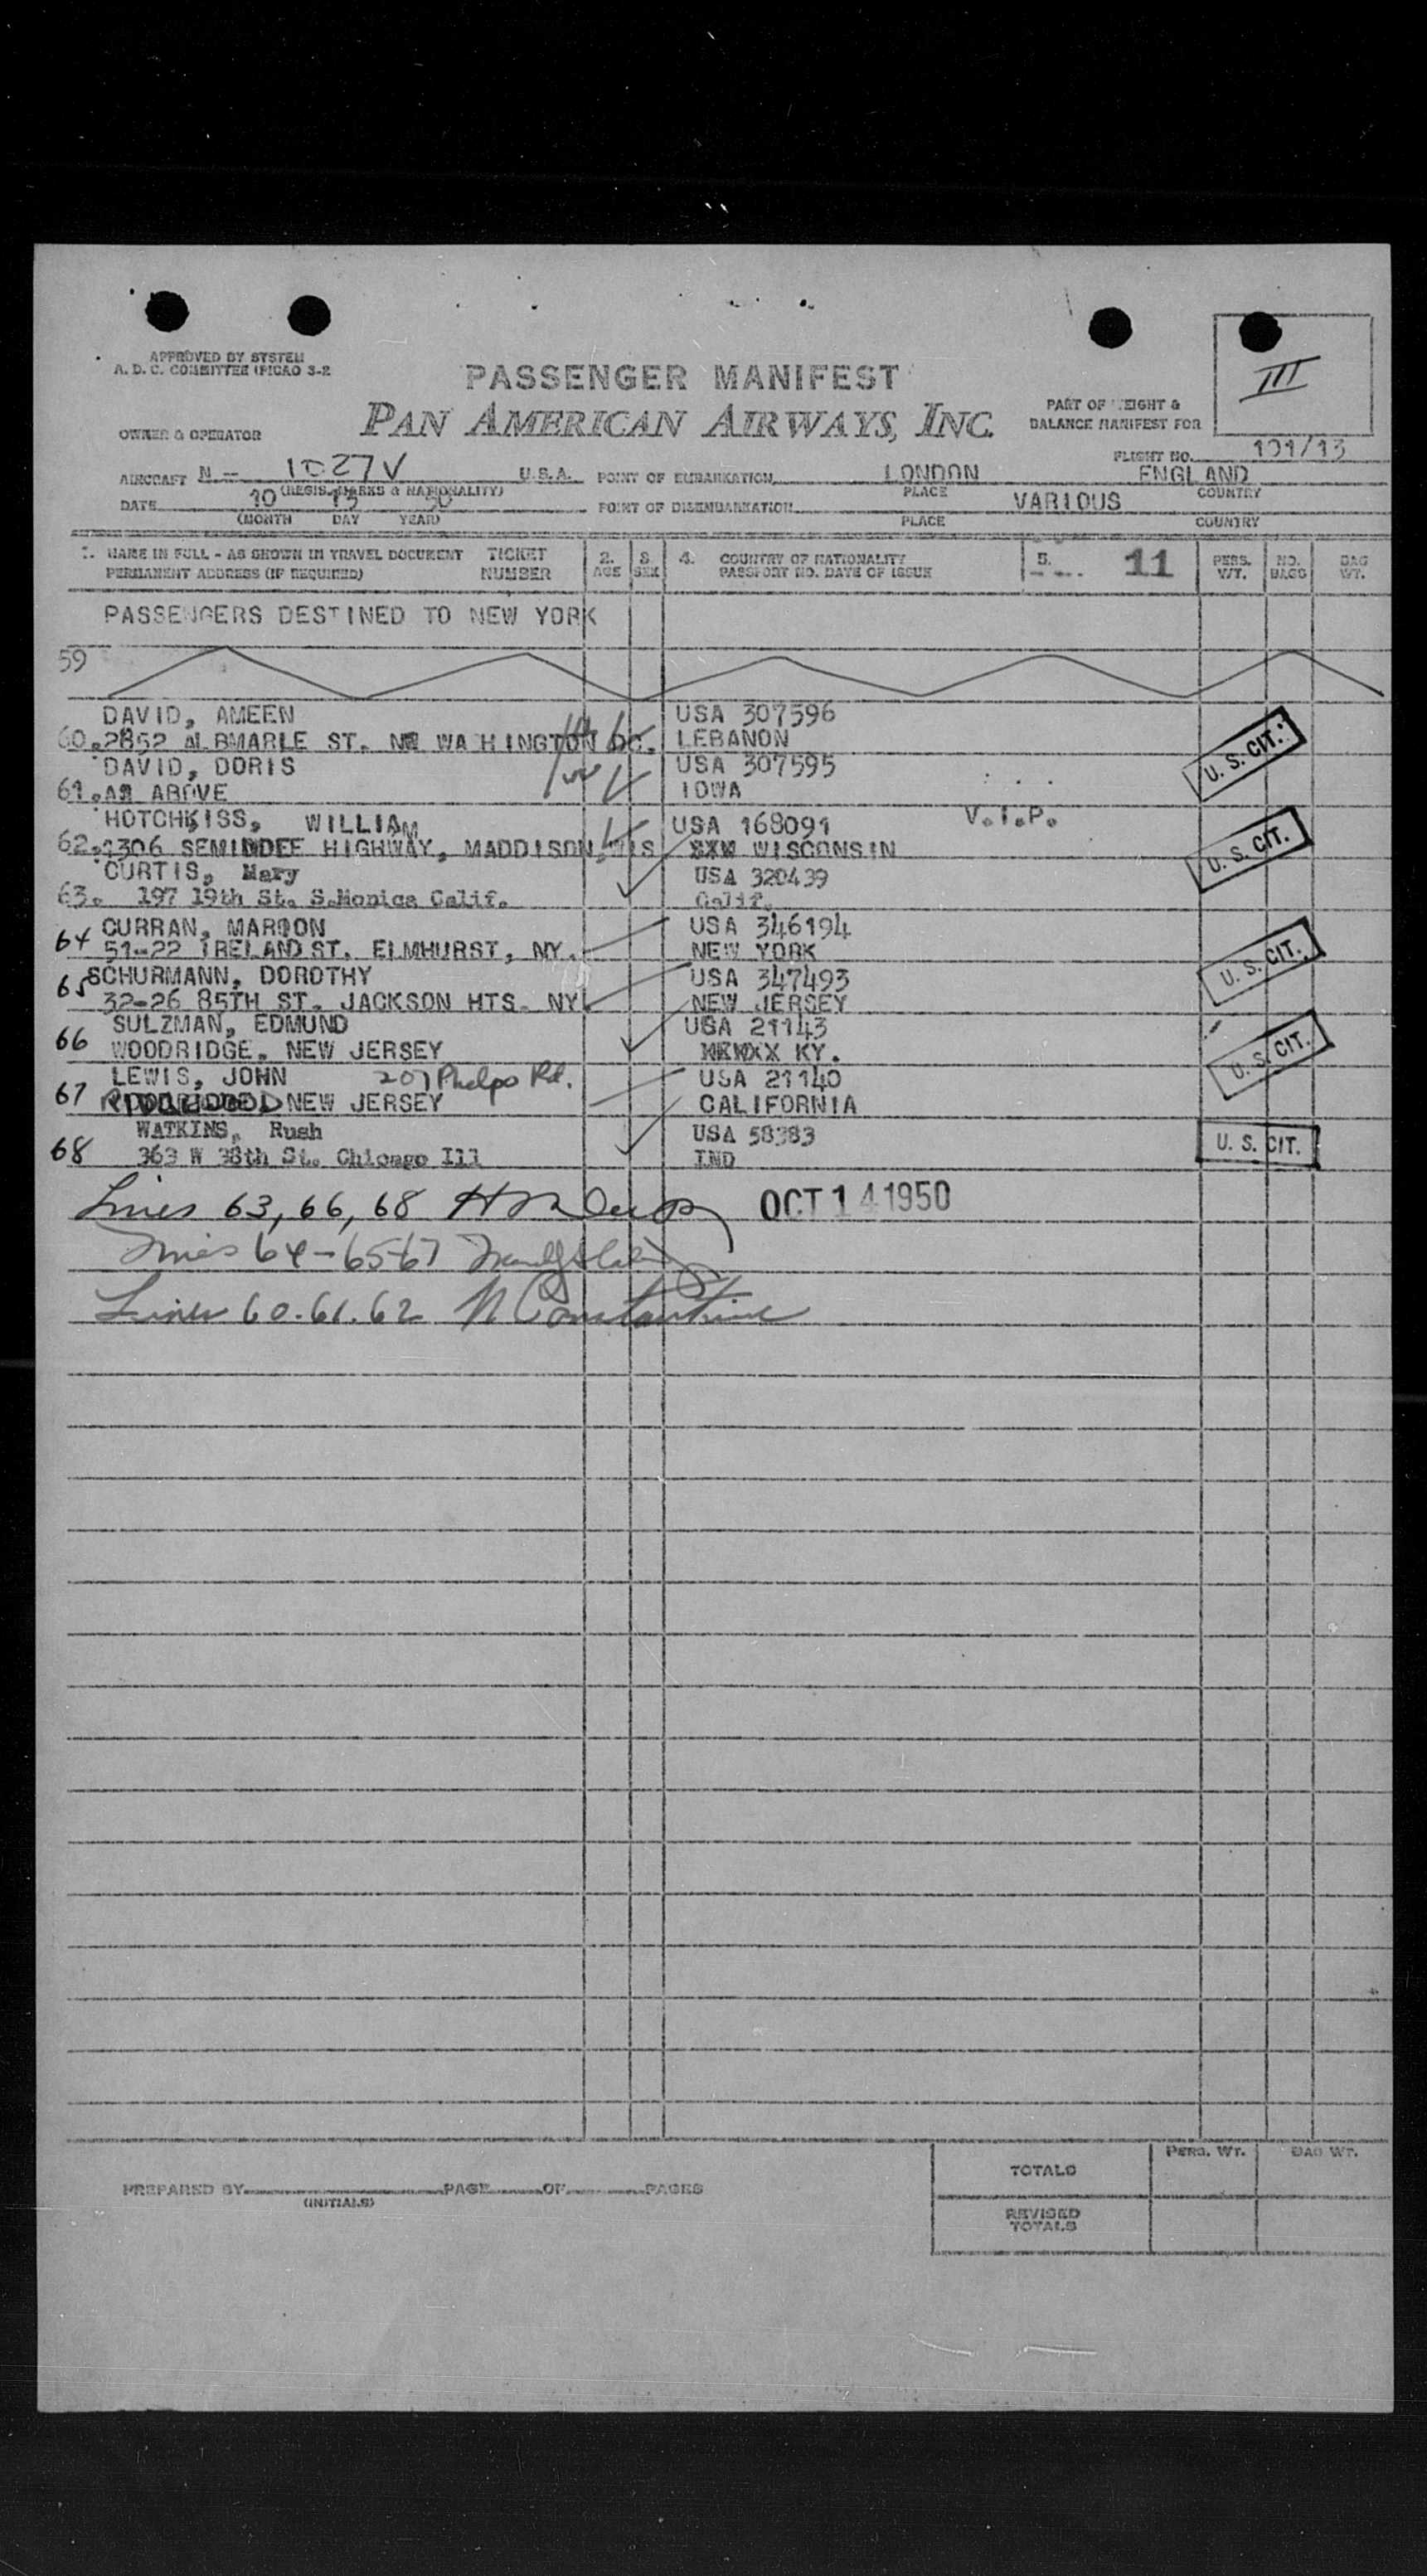 III
APPROVED BY SYSTEM
A. D. C. COMMITTEE (PICAO 3-2
PASSENGER MANIFEST
PAN AMERICAN AIRWAYS, INC.
PART OF WEIGHT &
BALANCE MANIFEST FOR
OWNER & OPERATOR
FLIGHT NO. 101/13
AIRCRAFT N - 1027V U.S.A. POINT OF EMBARKATION LONDON ENGLAND
(REGIS. MARKS & NATIONALITY) PLACE COUNTRY
DATE 10 13 50 POINT OF DISEMBARKATION VARIOUS
(MONTH DAY YEAR) PLACE COUNTRY
1. NAME IN FULL - AS SHOWN IN TRAVEL DOCUMENT TICKET 2. 3. 4. COUNTRY OF NATIONALITY 5. 11 PERS. NO. BAG
PERMANENT ADDRESS (IF REQUIRED) NUMBER AGE SEX PASSPORT NO. DATE OF ISSUE WT. BAGG WT.
PASSENGERS DESTINED TO NEW YORK
59
DAVID, AMEEN USA 307596
60. 2852 ALBMARLE ST. NW WA H INGTON DC. LEBANON
U. S. CIT.
DAVID, DORIS USA 307595
61. AS ABOVE IOWA
HOTCHKISS, WILLIAM USA 168091 V.I.P.
62. 1306 SEMINDEE HIGHWAY, MADDISON, WIS WISCONSIN
U. S. CIT.
CURTIS, Mary USA 320439
63. 197 19th St. S.Monica Calif. Calif.
CURRAN, MARION USA 346194
64 51-22 IRELAND ST. ELMHURST, NY. NEW YORK
U. S. CIT.
SCHURMANN, DOROTHY USA 347493
65 32-26 85TH ST. JACKSON HTS. NY NEW JERSEY
SULZMAN, EDMUND USA 21143
66 WOODRIDGE, NEW JERSEY KY.
U. S. CIT.
LEWIS, JOHN 207 Phelps Rd. USA 21140
67 NEW JERSEY CALIFORNIA
WATKINS, Rush USA 58383
68 363 W 38th St. Chicago Ill IND
U. S. CIT.
Lines 63, 66, 68 OCT 14 1950
Lines 64-65-67
Lines 60. 61. 62 N Constantine
TOTALS PERS. WT. BAG WT.
PREPARED BY PAGE OF PAGES
(INITIALS)
REVISED
TOTALS